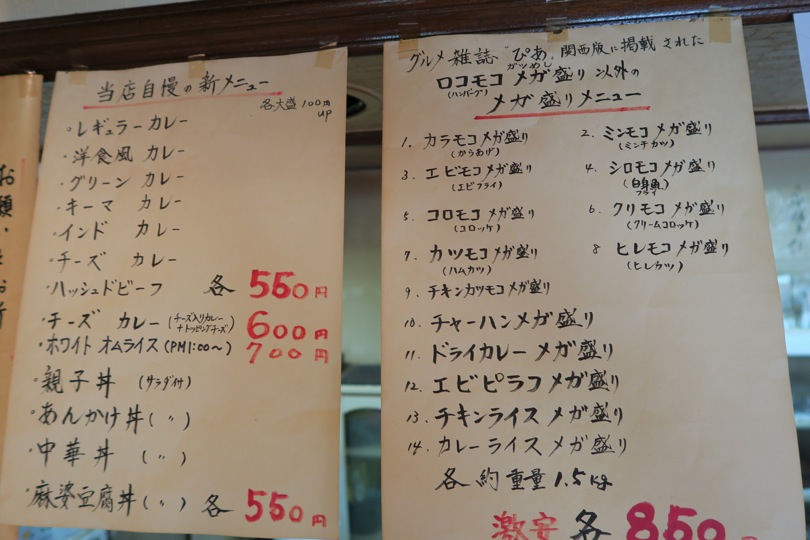 当店自慢の新メニュー
各大盛100円up
・レギュラーカレー
・洋食風カレー
・グリーンカレー
・キーマカレー
・インドカレー
・チーズカレー
・ハッシュドビーフ 各 550円
・チーズカレー(チーズ入りカレー+トッピングチーズ) 600円
・ホワイトオムライス(PM1:00〜) 700円
・親子丼(サラダ付)
・あんかけ丼(〃)
・中華丼(〃)
・麻婆豆腐丼(〃) 各 550円
グルメ雑誌"ぴあ"関西版に掲載された
ガツめし
ロコモコメガ盛り以外の
(ハンバーグ)
メガ盛りメニュー
1. カラモコメガ盛り 2. ミンモコメガ盛り
(からあげ) (ミンチカツ)
3. エビモコメガ盛り 4. シロモコメガ盛り
(エビフライ) (白身魚フライ)
5. コロモコメガ盛り 6. クリモコメガ盛り
(コロッケ) (クリームコロッケ)
7. カツモコメガ盛り 8 ヒレモコメガ盛り
(ハムカツ) (ヒレカツ)
9. チキンカツモコメガ盛り
10. チャーハンメガ盛り
11. ドライカレーメガ盛り
12. エビピラフメガ盛り
13. チキンライスメガ盛り
14. カレーライスメガ盛り
各約重量1.5kg
激安 各 850